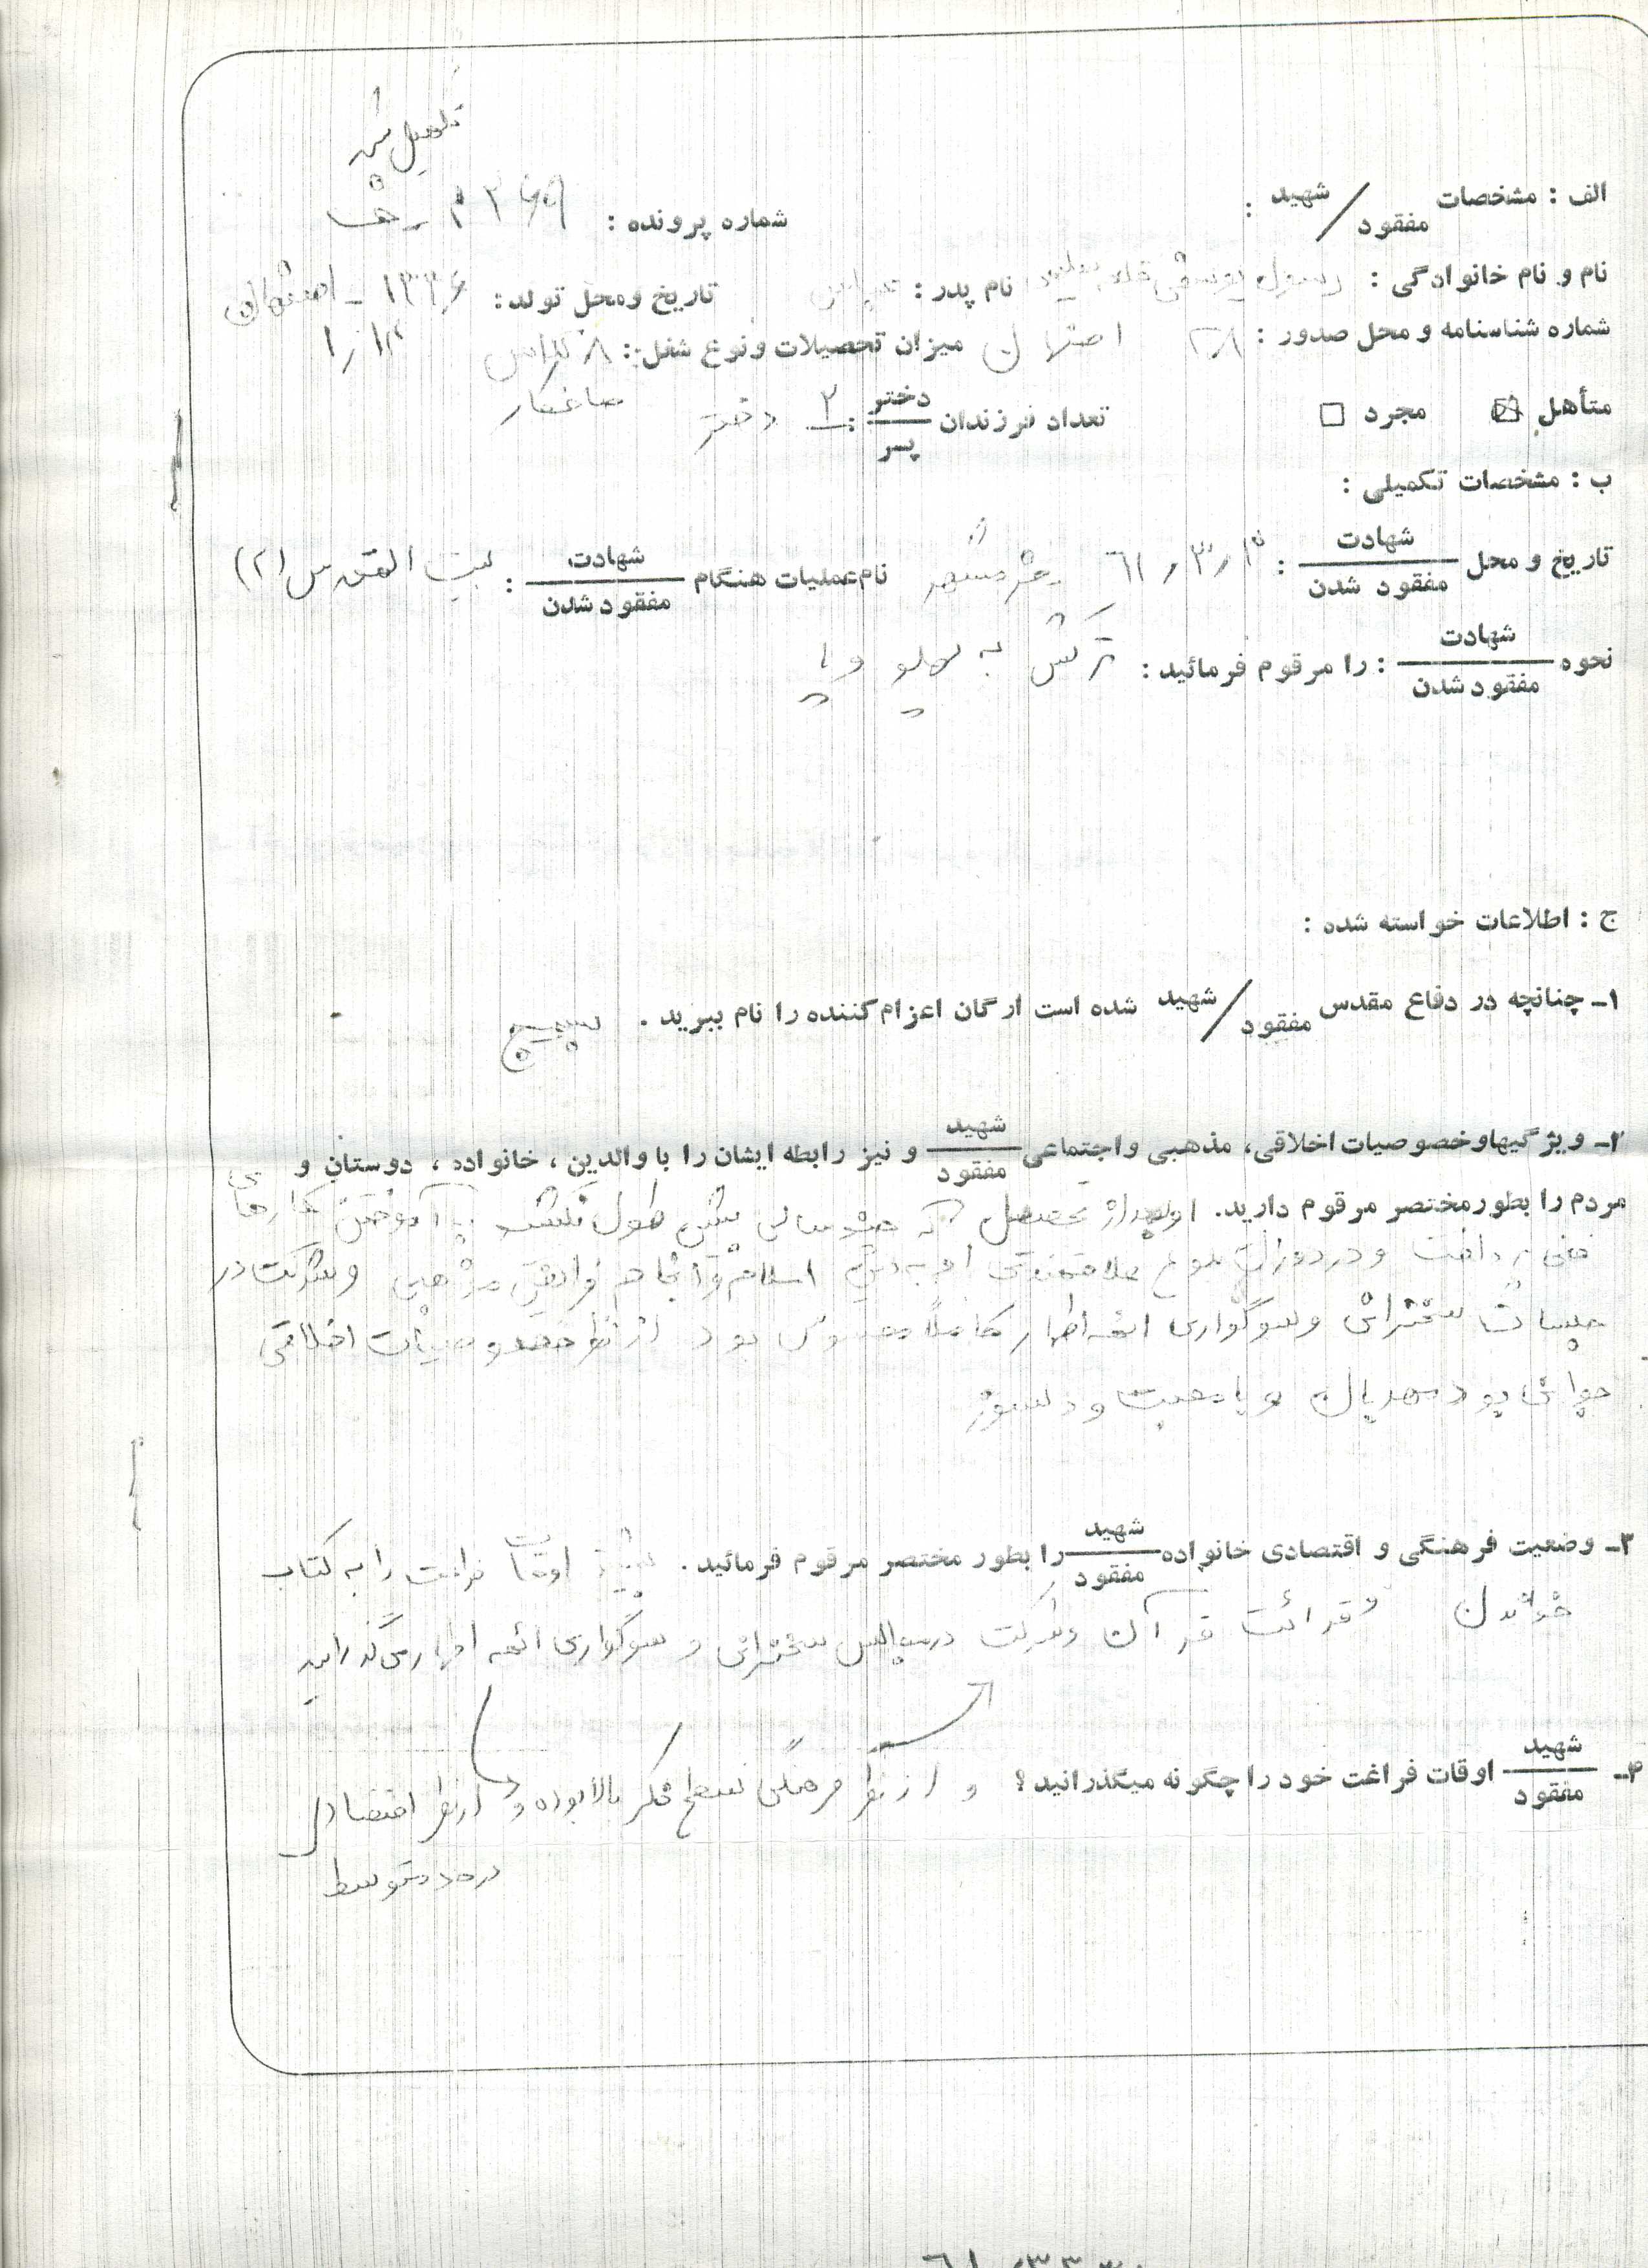 تکمیل شد
الف : مشخصات شهید / مفقود : شماره پرونده : ۲۶۹
نام و نام خانوادگی : رسول یوسفی نام پدر : عباس تاریخ و محل تولد : ۱۳۳۶ -
شماره شناسنامه و محل صدور : میزان تحصیلات و نوع شغل : ۸ کلاس
صافکار
متأهل ☒ مجرد □ تعداد فرزندان دختر / پسر : ۲ دختر
ب : مشخصات تکمیلی :
تاریخ و محل شهادت / مفقود شدن : ۶۱٫۳٫۱۰ خرمشهر نام عملیات هنگام شهادت / مفقود شدن : بیت المقدس (۲)
نحوه شهادت / مفقود شدن : را مرقوم فرمائید : ترکش به پهلو و پا
ج : اطلاعات خواسته شده :
۱ـ چنانچه در دفاع مقدس شهید / مفقود شده است ارگان اعزام کننده را نام ببرید . بسیج
۲ـ ویژگیها و خصوصیات اخلاقی، مذهبی و اجتماعی شهید / مفقود و نیز رابطه ایشان را با والدین ، خانواده ، دوستان و
مردم را بطور مختصر مرقوم دارید. او بعد از تحصیل که چند سالی بیش طول نکشید به آموختن کارهای
فنی پرداخت و در دوران بلوغ علاقمندی او به دین اسلام و انجام فرایض مذهبی و شرکت در
جلسات سخنرانی و سوگواری ائمه اطهار کاملاً محسوس بود از نظر خصوصیات اخلاقی
جوانی بود مهربان و با محبت و دلسوز
۳ـ وضعیت فرهنگی و اقتصادی خانواده شهید / مفقود را بطور مختصر مرقوم فرمائید. بیشتر اوقات فراغت را به کتاب
خواندن و قرائت قرآن و شرکت در مجالس سخنرانی و سوگواری ائمه اطهار می‌گذرانید
۴ـ شهید / مفقود اوقات فراغت خود را چگونه میگذرانید؟ و از نظر فرهنگی سطح فکر بالا بوده و از نظر اقتصادی
در حد متوسط